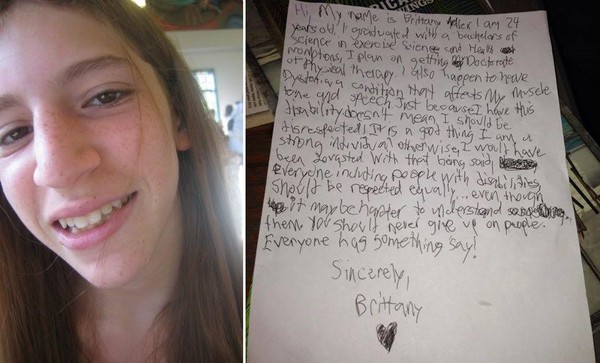 Hi, My name is Brittany Adler I am 24
years old, I graduated with a bachelors of
science in exercise science and Health
I plan on getting Doctorate
of physical therapy. I also happen to have
Dystonia a condition that affects my muscle
tone and speech. Just because I have this
disability doesn't mean I should be
disrespected! It is a good thing I am a
strong individual otherwise, I would have
been With that being said,
Everyone including people with disabilities
should be respected equally... even though
it may be harder to understand
them. You should never give up on people.
Everyone has something say!
Sincerely,
Brittany